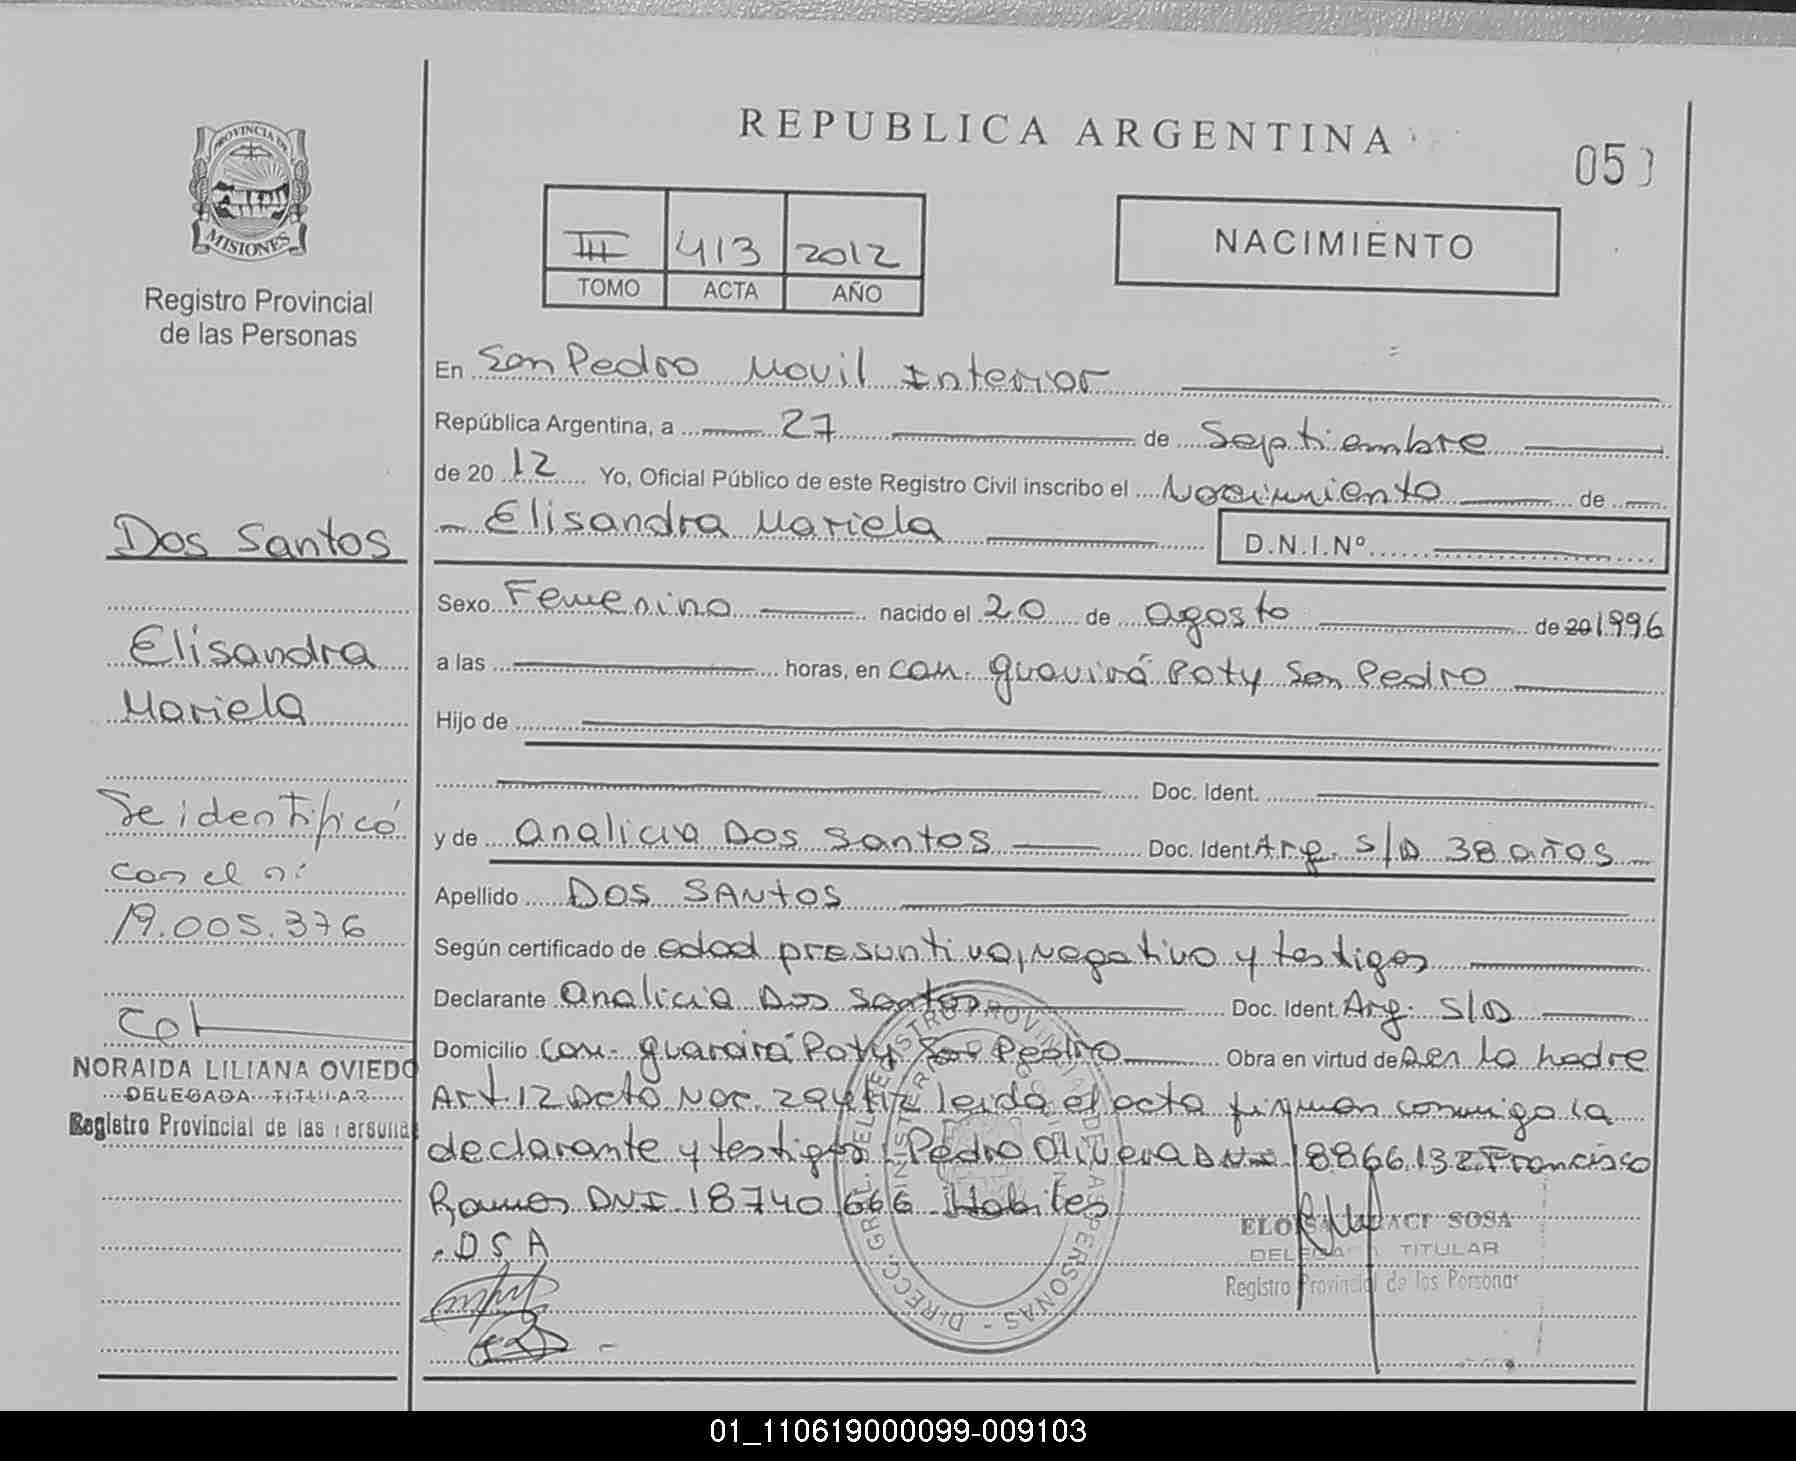 REPUBLICA ARGENTINA
05
PROVINCIA DE
MISIONES
Registro Provincial
de las Personas
III 413 2012
TOMO ACTA AÑO
NACIMIENTO
En San Pedro Movil Interior
República Argentina, a 27 de Septiembre
de 2012 Yo, Oficial Público de este Registro Civil inscribo el Nacimiento de
Elisandra Mariela D.N.I.Nº
Sexo Femenino nacido el 20 de agosto de 20 1996
a las horas, en com. guavirá Poty San Pedro
Hijo de
Doc. Ident.
y de Analicia Dos Santos Doc. Ident. Arg. S/D 38 años
Apellido DOS SANTOS
Según certificado de edad presuntiva, negativo y testigos
Declarante Analicia Dos Santos Doc. Ident. Arg. S/D
Domicilio Com. guavirá Poty San Pedro Obra en virtud de ser la madre
Art. 12 Dcto Nac. 294/12 leida el acta firman conmigo la
declarante y testigos Pedro Olivera DNI 18866.132 Francisco
Ramos DNI 18740.666 Habiles
DSA
Dos Santos
Elisandra
Mariela
Se identificó
con el nº
19.005.376
NORAIDA LILIANA OVIEDO
DELEGADA TITULAR
Registro Provincial de las Personas
SOSA
DELEGADA TITULAR
Registro Provincial de las Personas
01_110619000099-009103